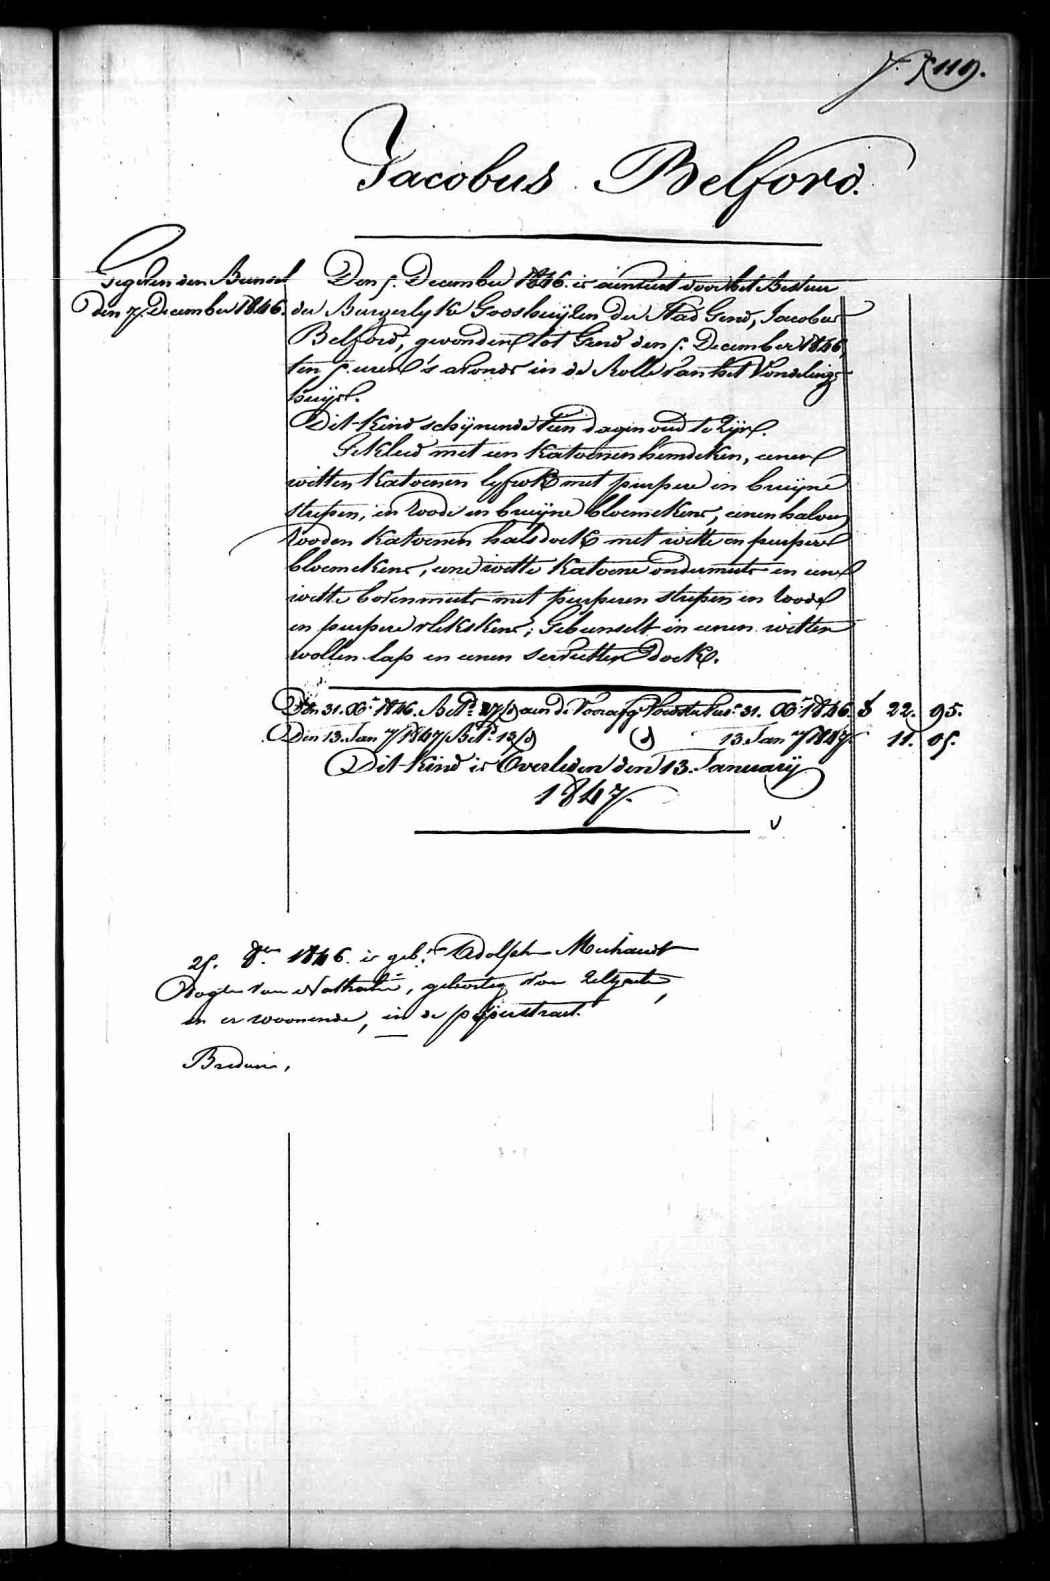 119.
Jacobus Belford.
Gegeven den Bunsel
Den 7 December 1846.
Den 5. December 1846. is aenveird door het Bestuer
der Burgerlyke Godshuijzen der Stad Gend, Jacobus
Belford, gevonden tot Gend den 5. December 1846,
ten 5 uren 's avonds in de Rolle van het Vondelings-
huijs.
Dit Kind schijnende tien dagen oud te Zijn.
Gekleed met een Katoenen hemdeken, eenen
witten Katoenen lyfrok met purpere en bruijne
strepen, en roode en bruijne bloemekens, eenen halven
rooden Katoenen halsdoek met witte en purpere
bloemekens, eene witte Katoene ondermuts en eene
witte bovenmuts met purperen strepen en roode
en purpere vlekskens; Gebunselt in eenen witten
wollen lap en eenen servietten doek.
Den 31. Xbr 1846. Bet. 27 aen de 31. Xbr 1846. f 22. 95.
Den 13. Jan 1847 Bet. 13 13. Jan 1847. 11. 05.
Dit Kind is Overleden den 13. Januarij
1847.
25. 1846. is geb. Adolph Michaut
van Nathalie, geboortig van Zelzaete
en er woonende, in de pijperstraet.